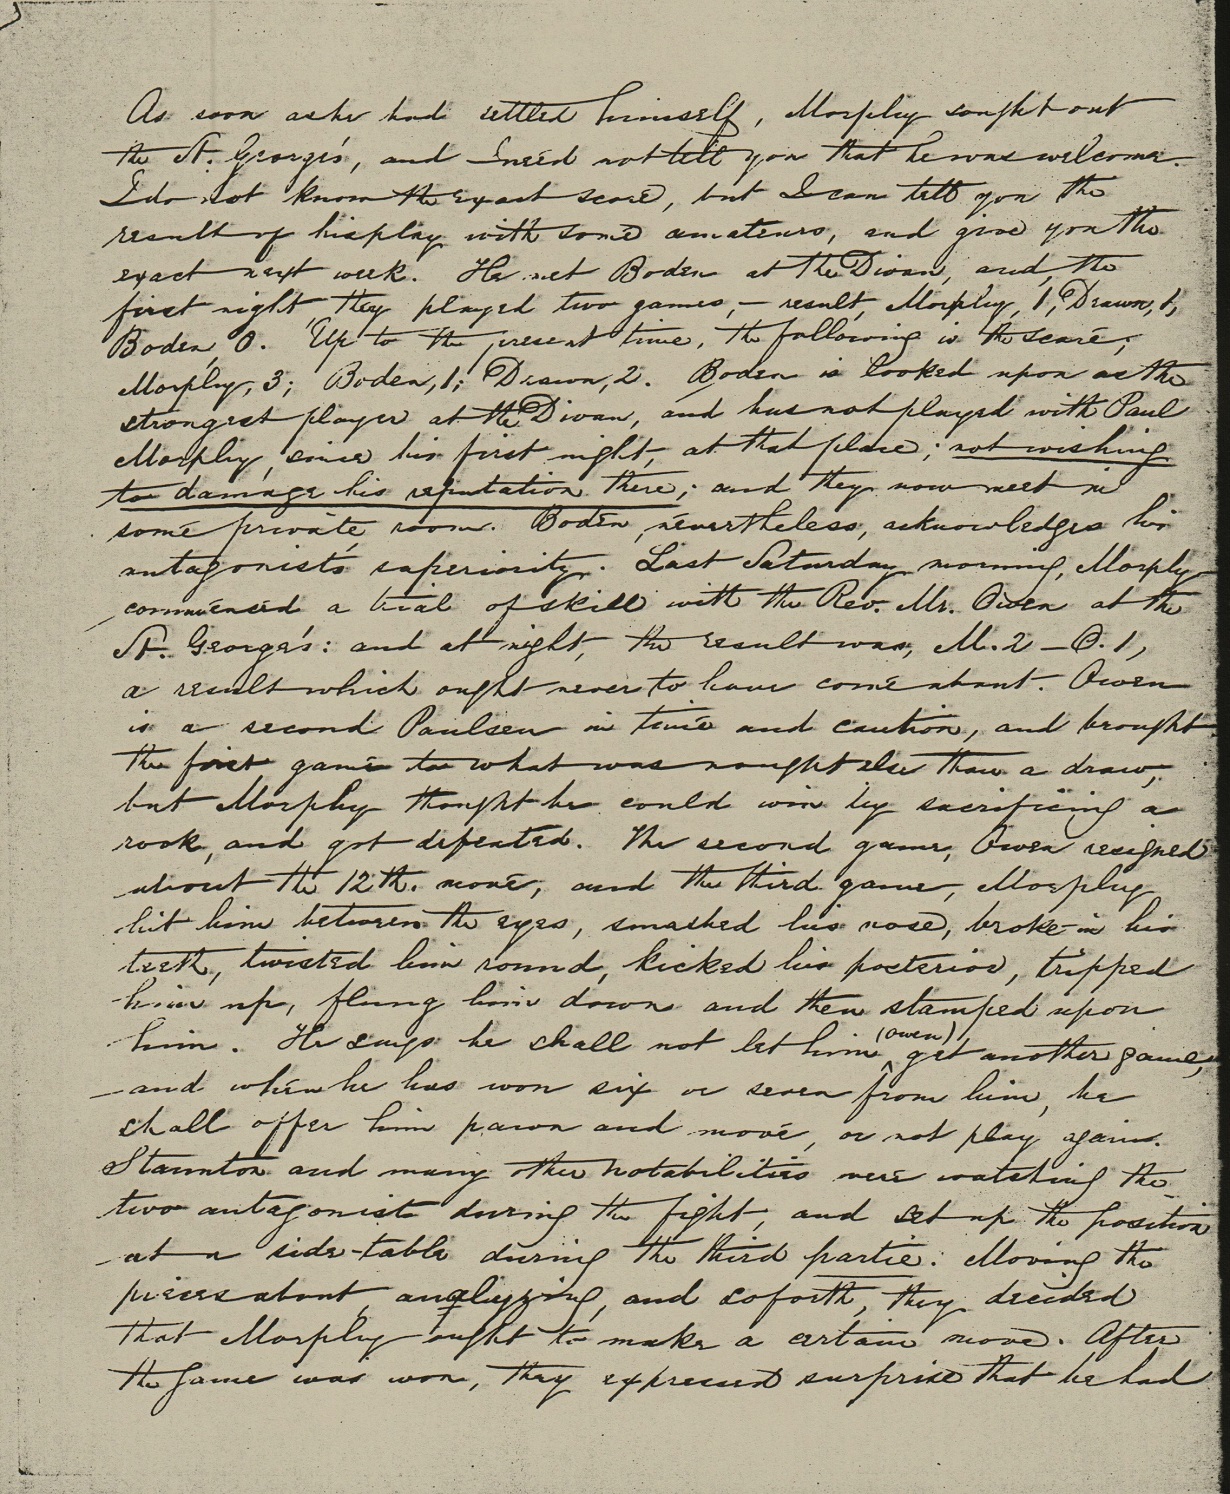 As soon as he had settled himself, Morphy sought out
the St. George's, and I need not tell you that he was welcome.
I do not know the exact score, but I can tell you the
result of his play with some amateurs, and give you the
exact next week. He met Boden at the Divan, and, the
first night, they played two games, — result, Morphy, 1; Drawn, 1;
Boden, 0. Up to the present time, the following is the score;
Morphy, 3; Boden, 1; Drawn, 2. Boden is looked upon as the
strongest player at the Divan, and has not played with Paul
Morphy, since his first night, at that place; not wishing
to damage his reputation there; and they now meet in
some private room. Boden, nevertheless, acknowledges his
antagonist's superiority. Last Saturday morning, Morphy
commenced a trial of skill with the Rev. Mr. Owen at the
St. George's: and at night, the result was, M. 2 — O. 1,
a result which ought never to have come about. Owen
is a second Paulsen in time and caution, and brought
the first game to what was nought else than a draw,
but Morphy thought he could win by sacrificing a
rook, and got defeated. The second game, Owen resigned
about the 12th. move, and the third game, Morphy
hit him between the eyes, smashed his nose, broke in his
teeth, twisted him round, kicked his posterior, tripped
him up, flung him down and then stamped upon
him. He says he shall not let him (Owen) get another game,
and when he has won six or seven from him, he
shall offer him pawn and move, or not play again.
Staunton and many other notabilities were watching the
two antagonists during the fight, and set up the position
at a side-table during the third partie. Moving the
pieces about, analyzing, and so forth, they decided
that Morphy ought to make a certain move. After
the game was won, they expressed surprise that he had